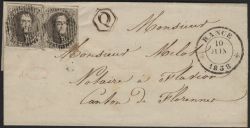 Q
RANCE
10
JUIN
1858
Monsieur
Monsieur Melot
Notaire à
Canton de Florennes